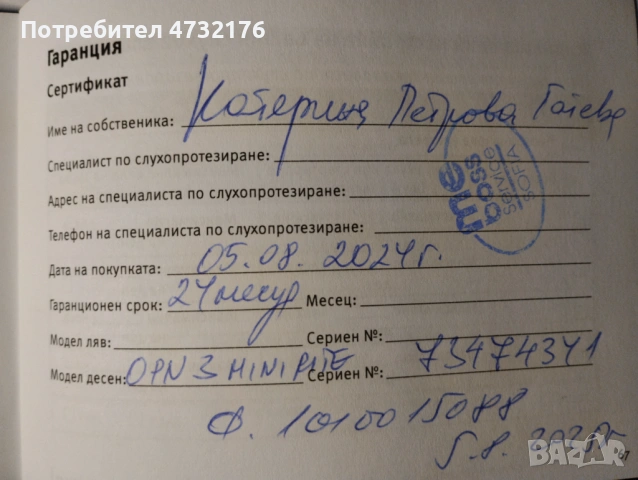 Потребител 4732176
Гаранция
Сертификат
Име на собственика: Катерина Петрова Гатева
Специалист по слухопротезиране:
Адрес на специалиста по слухопротезиране:
Телефон на специалиста по слухопротезиране:
Дата на покупката: 05.08.2024г.
Гаранционен срок: 24 месец Месец:
Модел ляв: Сериен №:
Модел десен: OPN 3 MINIRITE Сериен №: 73474341
ф. 1010015088
5.8.
67
SERVICE
SOFIA
BAZAR